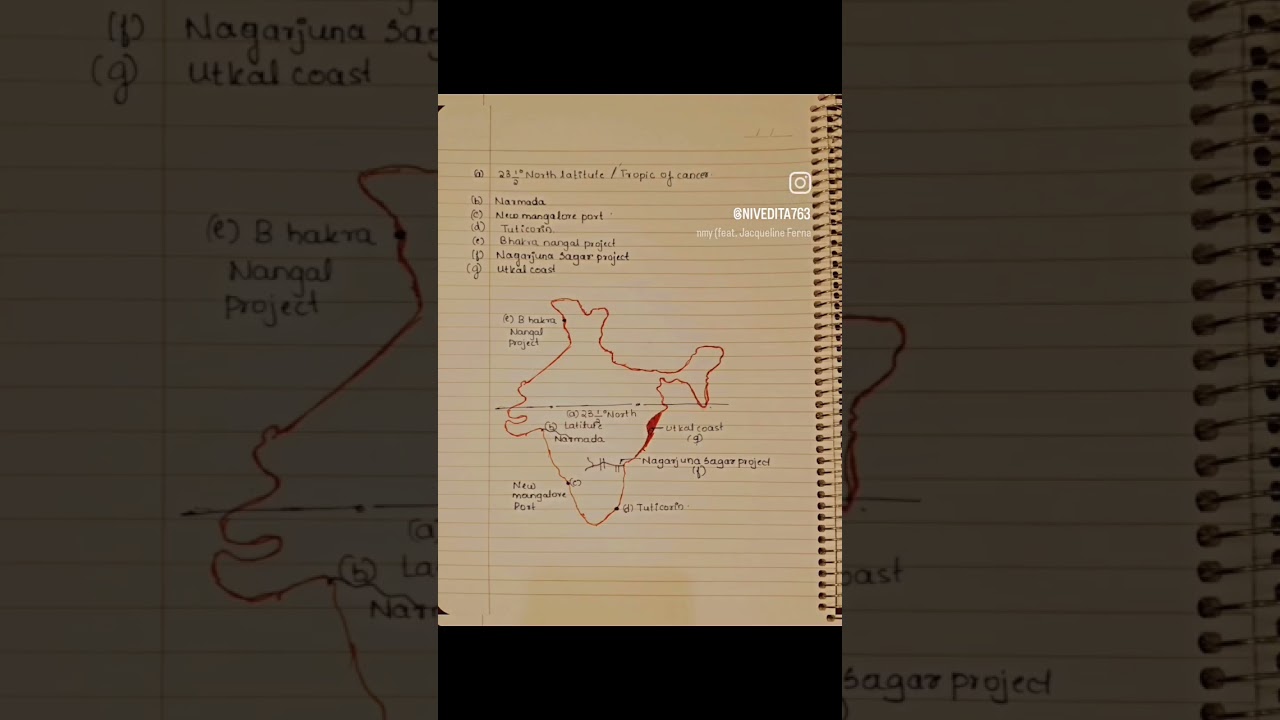 (a) 23 1/2° North latitute / Tropic of cancer.
(b) Narmada
(c) New mangalore port
(d) Tuticorin
(e) Bhakra nangal project
(f) Nagarjuna sagar project
(g) Utkal coast
@NIVEDITA763
nmy (feat. Jacqueline Ferna
(e) Bhakra
Nangal
Project
(a) 23 1/2° North
Latitute
(b)
Narmada
Utkal coast
(g)
Nagarjuna sagar project
(f)
(c)
New
mangalore
Port
(d) Tuticorin
(f) Nagarjuna sag
(g) Utkal coast
(e) Bhakra
Nangal
Project
(a)
(b) La
Narm
oast
sagar project